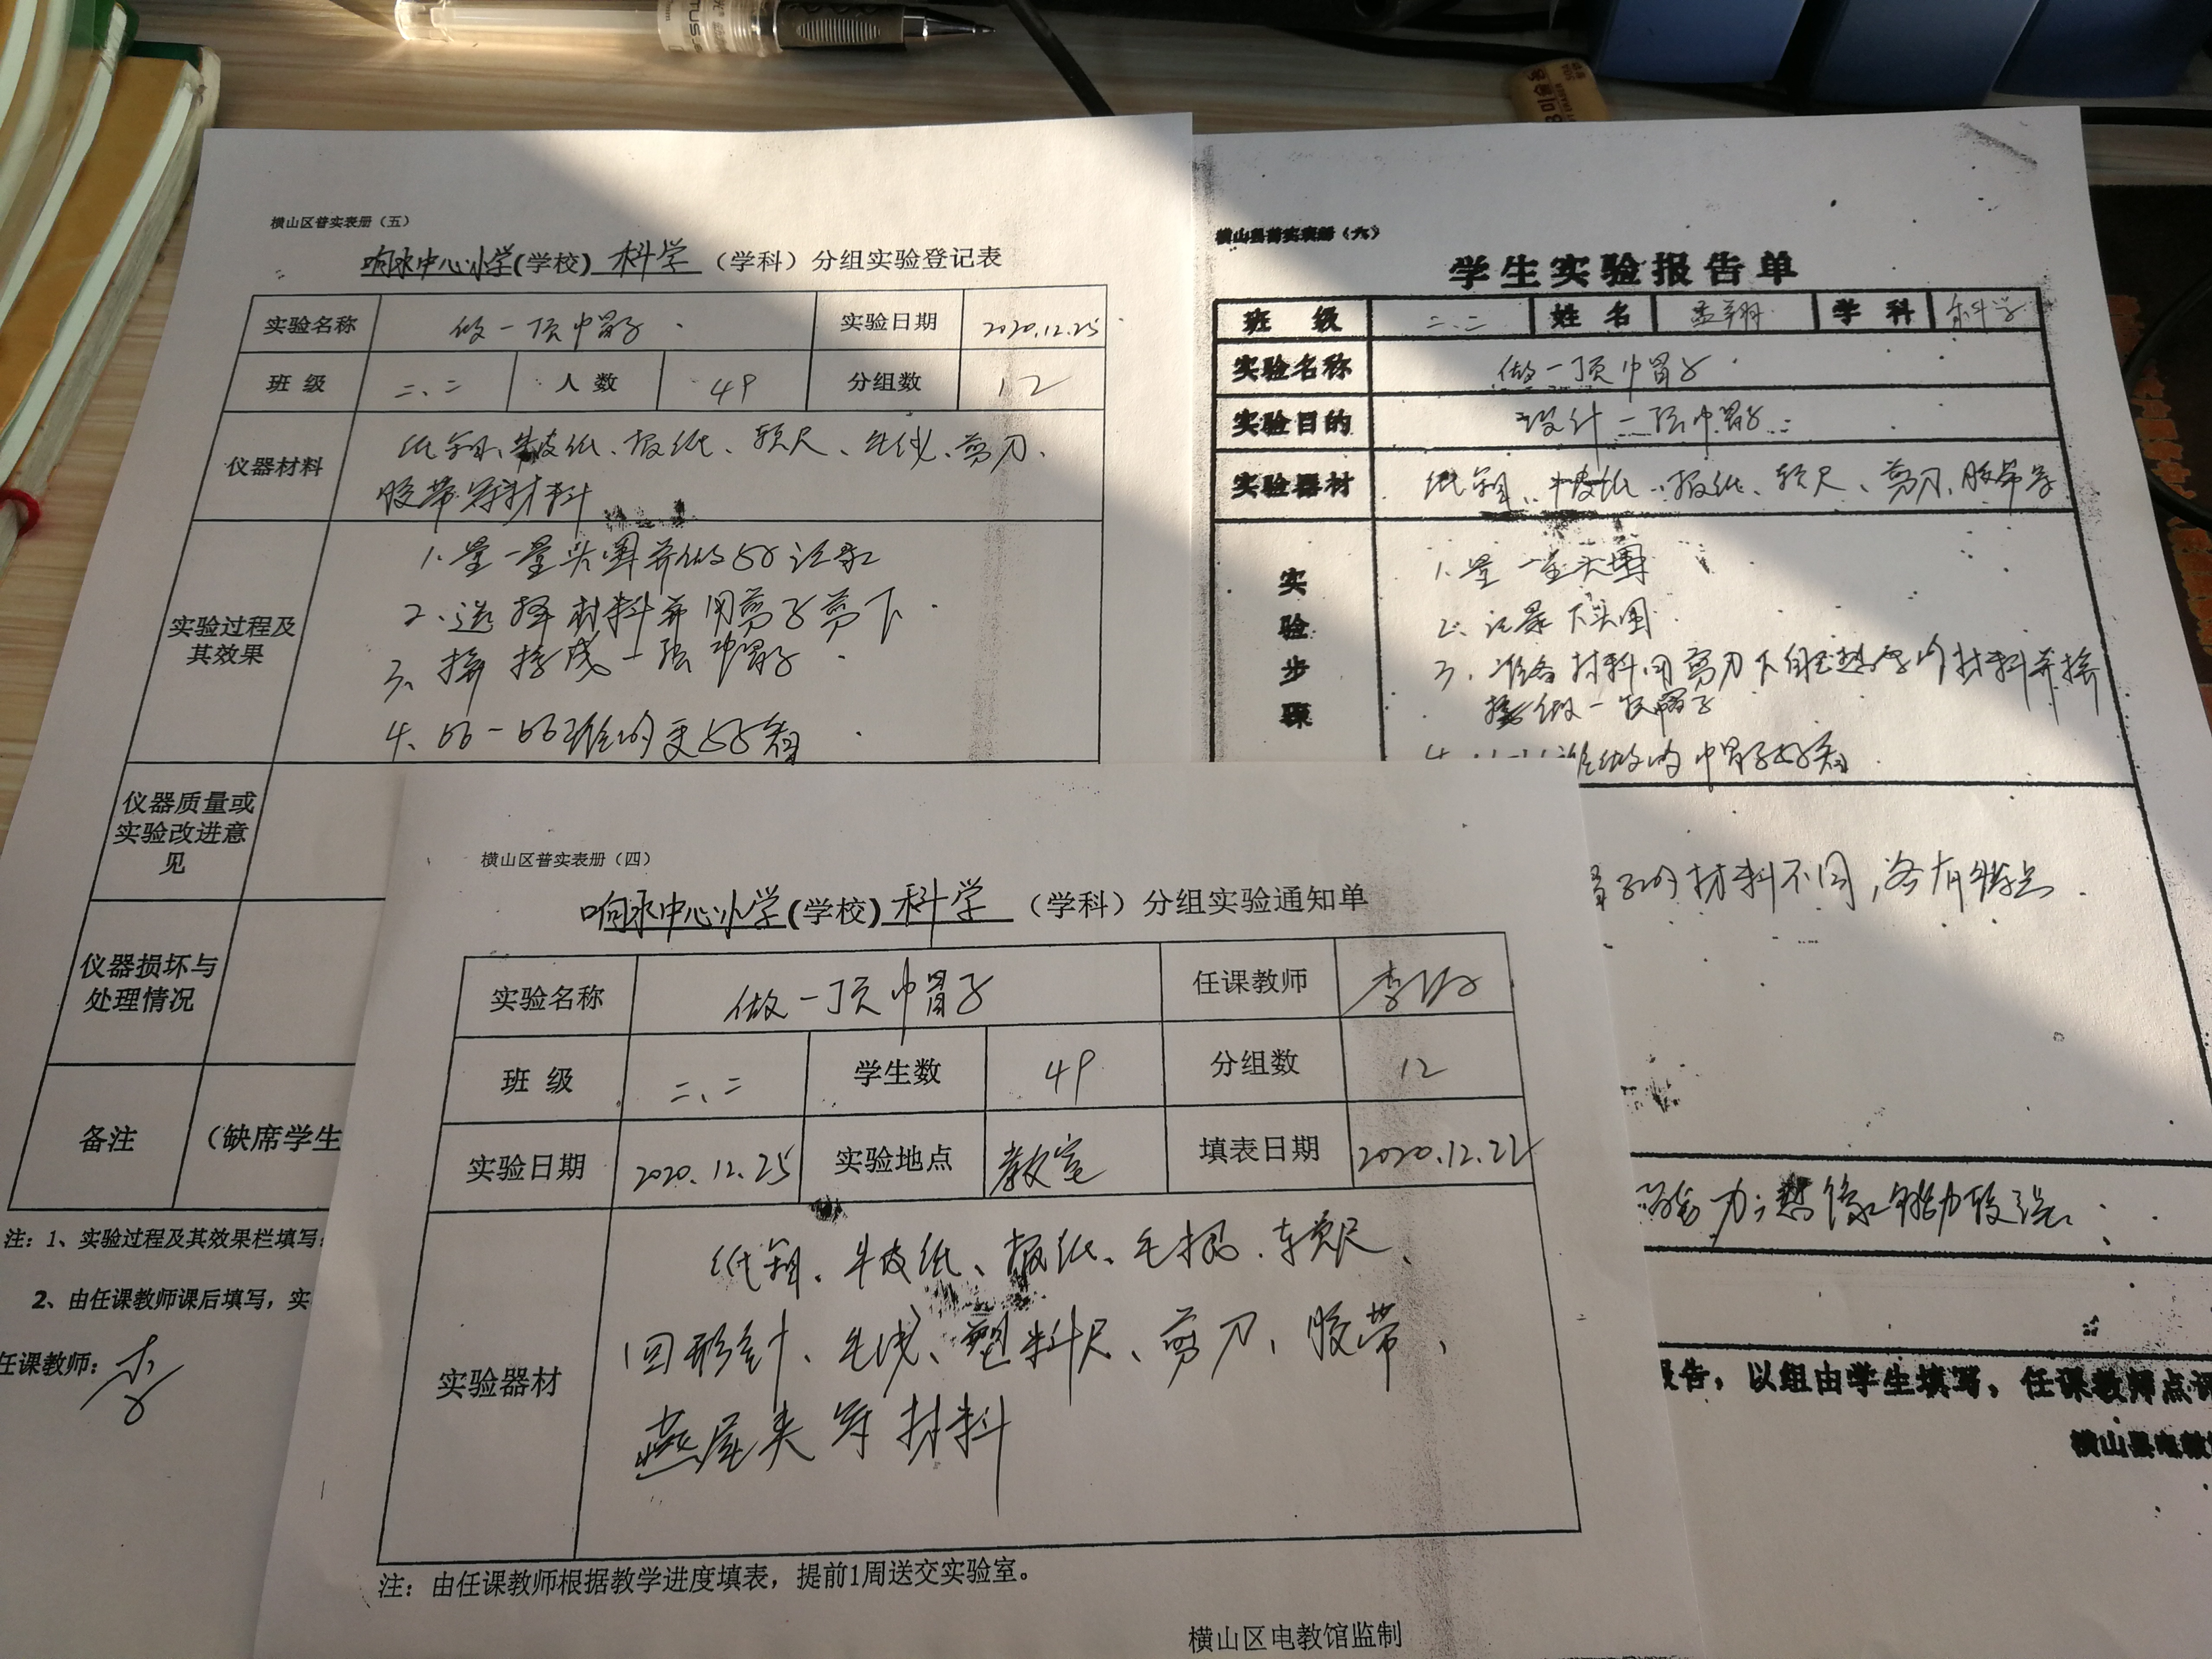 横山区普实表册（五）
响水中心小学(学校) 科学 （学科）分组实验登记表
实验名称 做一顶帽子 实验日期 2020.12.25
班 级 二、二 人 数 49 分组数 12
仪器材料 纸、牛皮纸、报纸、软尺、毛线、剪刀、
胶带等材料
实验过程及其效果
1、量一量头围并做好记录
2、选择材料并用剪子剪下
3、拼接成一顶帽子
4、比一比谁的更好看
仪器质量或实验改进意见
仪器损坏与处理情况
备注 （缺席学生
注：1、实验过程及其效果栏填写
2、由任课教师课后填写，实
任课教师：李
横山县普实表册（六）
学生实验报告单
班 级 二、二 姓 名 孟翔 学 科 科学
实验名称 做一顶帽子
实验目的 设计一顶帽子
实验器材 牛皮纸、报纸、软尺、剪刀、胶带等
实验步骤
1、量一量头围
2、记录下头围
3、准备材料用剪刀下自己想要的材料并拼
接做一顶帽子
谁做的帽子好看
帽子的材料不同，各有特点
力；想像能力较强
报告，以组由学生填写，任课教师点评
横山县电教
横山区普实表册（四）
响水中心小学(学校) 科学 （学科）分组实验通知单
实验名称 做一顶帽子 任课教师 李
班 级 二、二 学生数 49 分组数 12
实验日期 2020.12.25 实验地点 教室 填表日期 2020.12.22
实验器材
牛皮纸、报纸、软尺、
回形针、毛线、塑料尺、剪刀、胶带、
燕尾夹等材料
注：由任课教师根据教学进度填表，提前1周送交实验室。
横山区电教馆监制